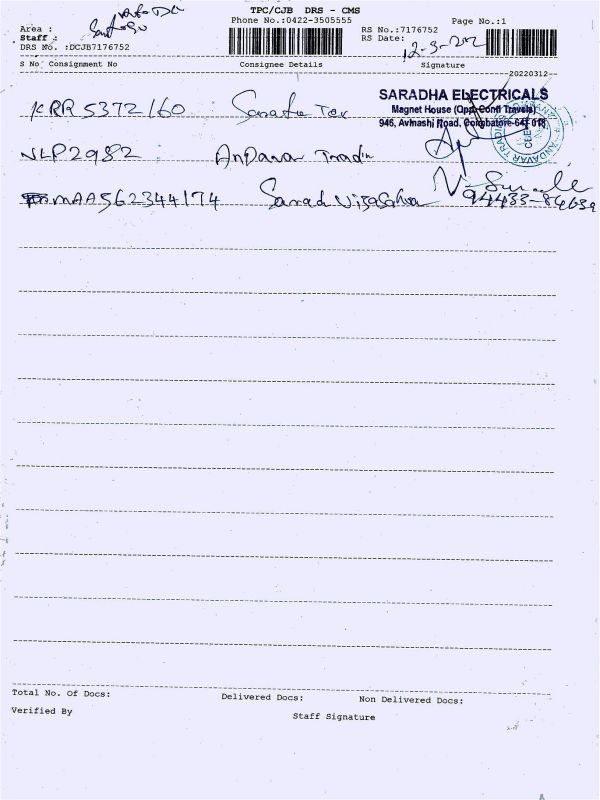 TPC/CJB DRS - CMS
Phone No.:0422-3505555
Page No.:1
Area :
Staff :
DRS No. :DCJB7176752
RS No.:7176752
RS Date:
12-3-202
S No Consignment No Consignee Details Signature
20220312
KRR 5372160
SARADHA ELECTRICALS
Magnet House (Opp. Conti Travels)
946, Avinashi Road, Coimbatore-641 018
NLP2982 Andavar Tradin
ANDAVAR TRADING
MAA562344174
94433-84639
Total No. Of Docs: Delivered Docs: Non Delivered Docs:
Verified By Staff Signature